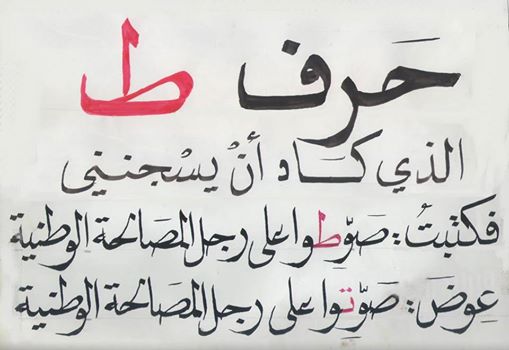 حَرف ط
الذي كَاد أنْ يسْجنني
فكتبتُ: صَوّطوا على رجل المصَالحة الوطنية
عِوضَ: صَوّتوا على رجل المصَالحة الوطنية